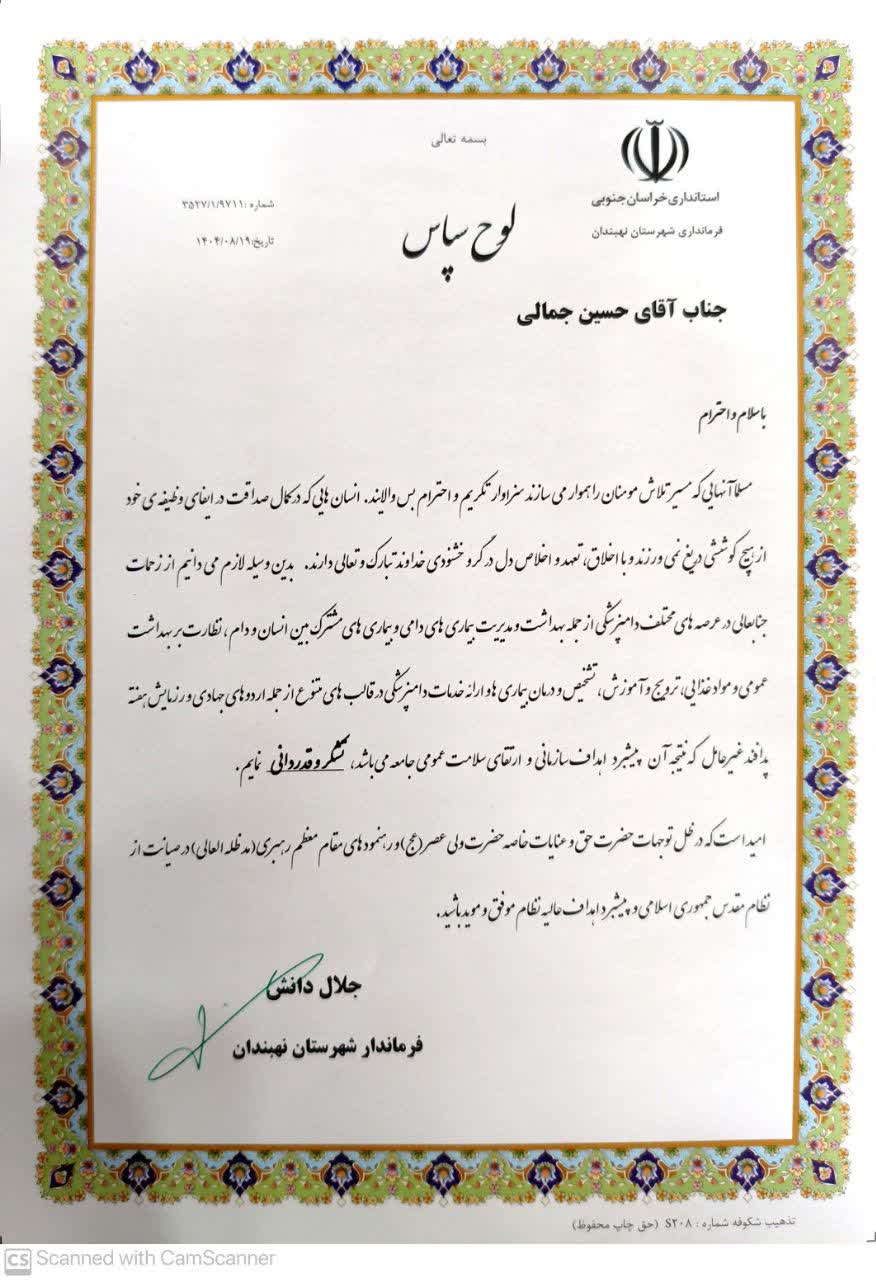 بسمه تعالی
استانداری خراسان جنوبی
فرمانداری شهرستان نهبندان
شماره :۳۵۲۷/۱/۹۷۱۱
تاریخ:۱۴۰۴/۰۸/۱۹
لوح سپاس
جناب آقای حسین جمالی
باسلام و احترام
مسلما آنهایی که مسیر تلاش مومنان را هموار می سازند سزاوار تکریم و احترام بس والایند. انسان هایی که در کمال صداقت در ایفای وظیفه ی خود
از هیچ کوششی دریغ نمی ورزند و با اخلاق، تعهد و اخلاص دل در گرو خشنودی خداوند تبارک و تعالی دارند. بدین وسیله لازم می دانیم از زحمات
جنابعالی در عرصه های مختلف دامپزشکی از جمله بهداشت و مدیریت بیماری های دامی و بیماری های مشترک بین انسان و دام ، نظارت بر بهداشت
عمومی و مواد غذایی، ترویج و آموزش، تشخیص و درمان بیماری ها و ارائه خدمات دامپزشکی در قالب های متنوع از جمله اردوهای جهادی و رزمایش هفته
پدافند غیرعامل که نتیجه آن پیشبرد اهداف سازمانی و ارتقای سلامت عمومی جامعه می باشد، تشکر و قدردانی نمایم .
امید است که در ظل توجهات حضرت حق و عنایات خاصه حضرت ولی عصر(عج) و رهنمودهای مقام معظم رهبری(مد ظله العالی) در صیانت از
نظام مقدس جمهوری اسلامی و پیشبرد اهداف عالیه نظام موفق و موید باشید.
جلال دانش
فرماندار شهرستان نهبندان
تذهیب شکوفه شماره : S۲۰۸ (حق چاپ محفوظ)
CS Scanned with CamScanner